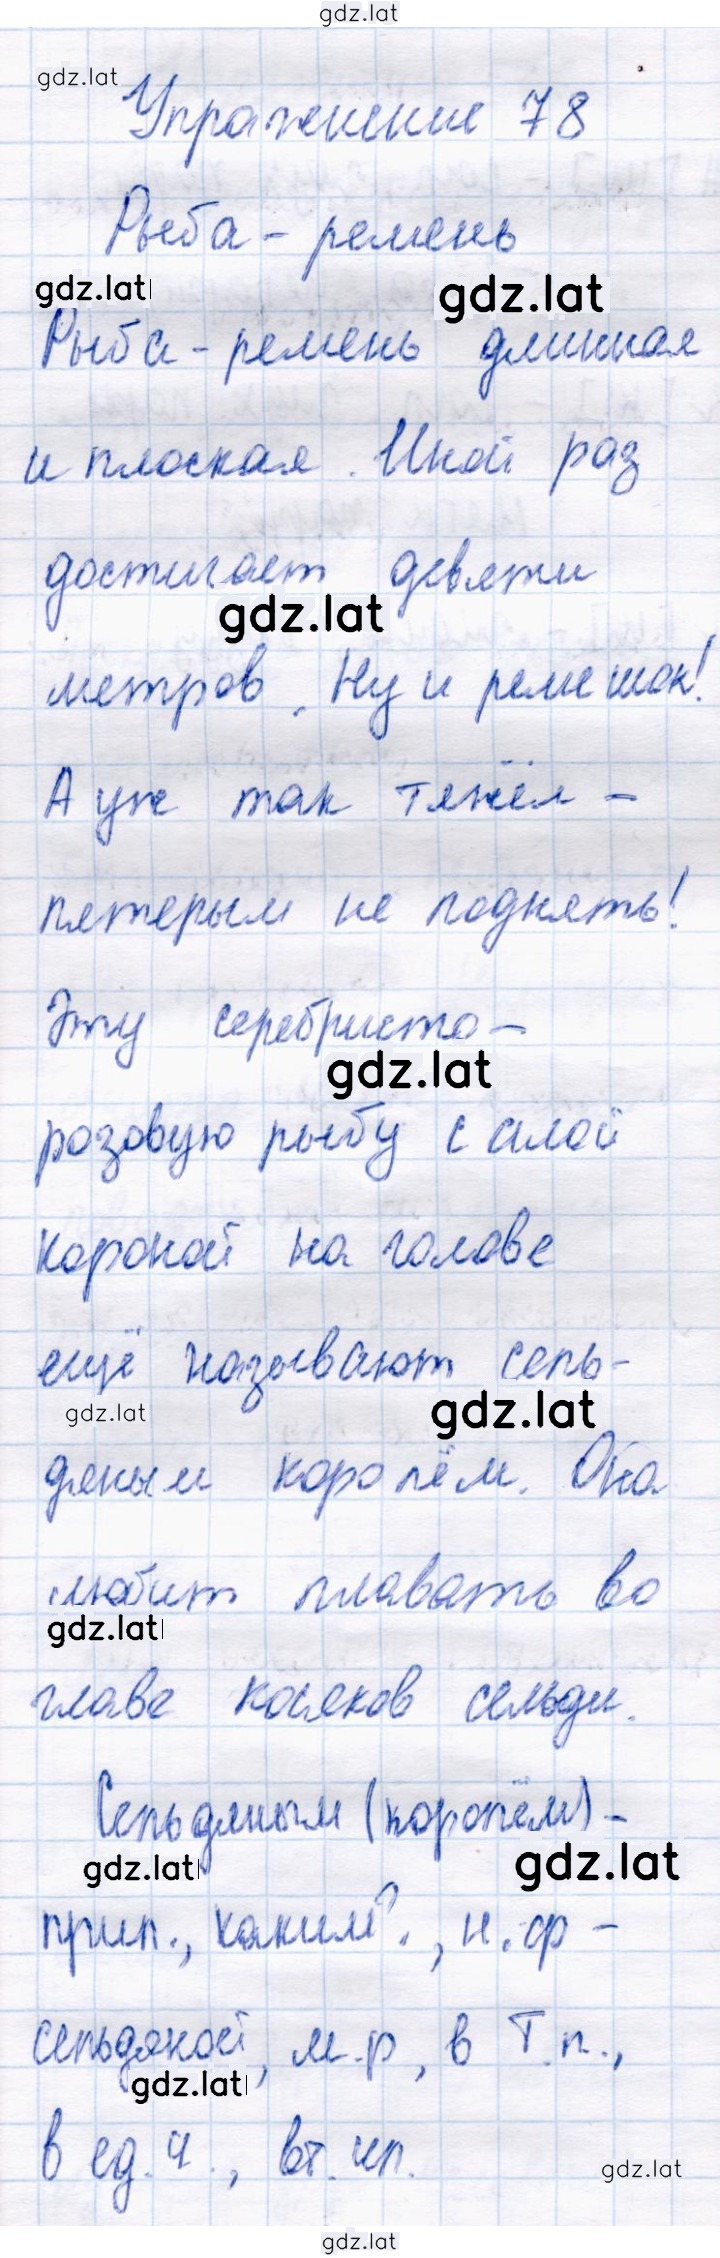 gdz.lat
gdz.lat
Упражнение 78
Рыба - ремень
gdz.lat
gdz.lat
Рыба - ремень длинная
и плоская. Иной раз
достигает девяти
gdz.lat
метров. Ну и ремешок!
А уж так тяжёл -
пятерым не поднять!
Эту серебристо -
gdz.lat
розовую рыбу с алой
короной на голове
ещё называют сель-
gdz.lat
gdz.lat
дяным королём. Она
любит плавать во
gdz.lat
главе косяков сельди.
Сельдяным (королём) -
gdz.lat
gdz.lat
прил., каким?., н.ф -
сельдяной, м.р, в Т.п.,
gdz.lat
в ед.ч., вт.чл.
gdz.lat
gdz.lat